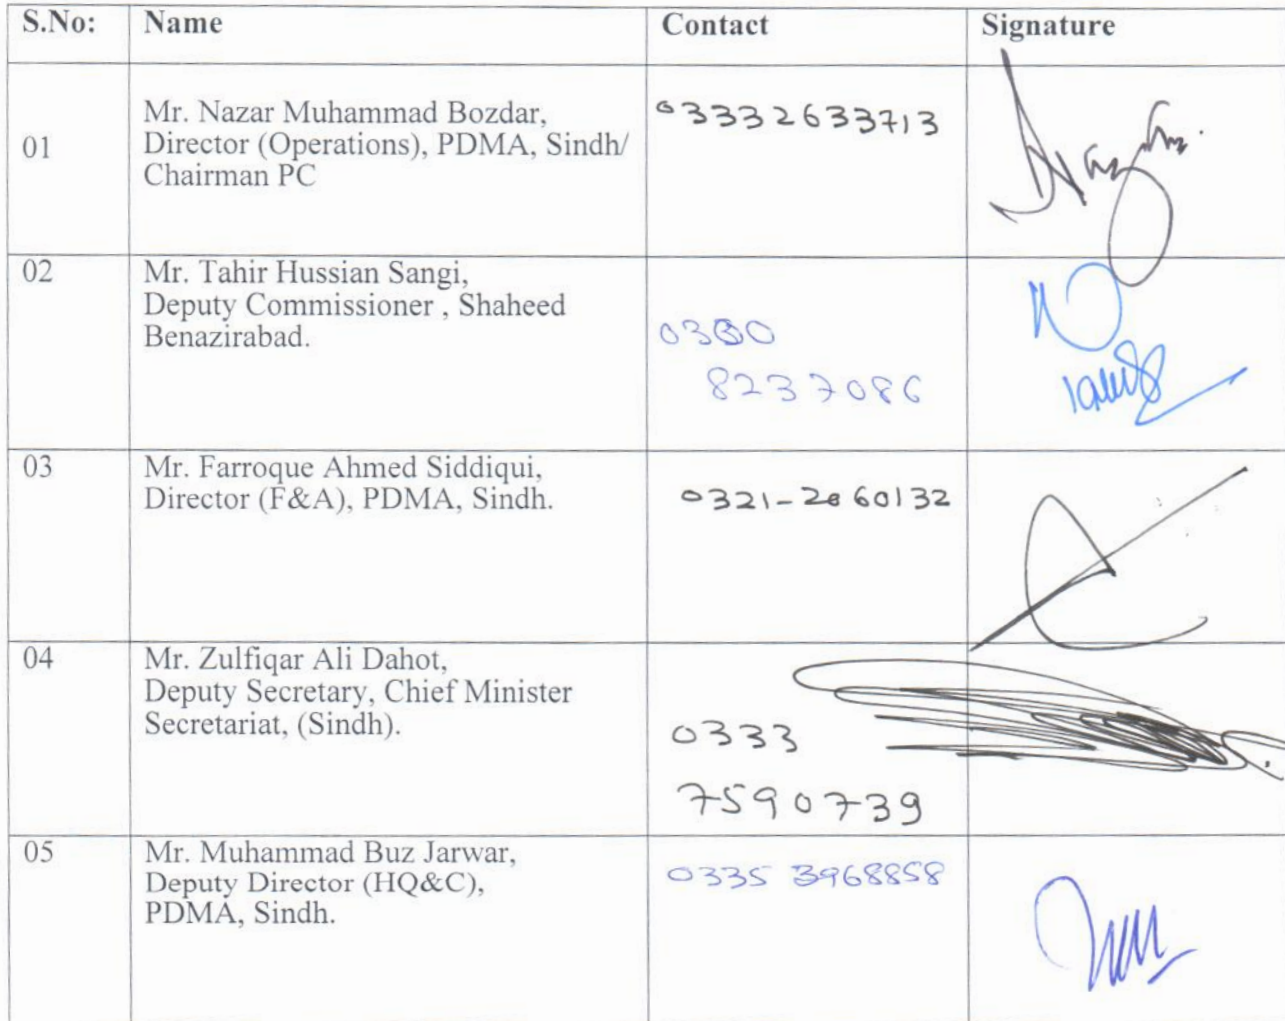 S.No: Name Contact Signature
01 Mr. Nazar Muhammad Bozdar, 03332633713
Director (Operations), PDMA, Sindh/
Chairman PC
02 Mr. Tahir Hussian Sangi,
Deputy Commissioner , Shaheed
Benazirabad.
0300
8237086
03 Mr. Farroque Ahmed Siddiqui,
Director (F&A), PDMA, Sindh. 0321-2060132
04 Mr. Zulfiqar Ali Dahot,
Deputy Secretary, Chief Minister
Secretariat, (Sindh).
0333
7590739
05 Mr. Muhammad Buz Jarwar, 0335 3968858
Deputy Director (HQ&C),
PDMA, Sindh.